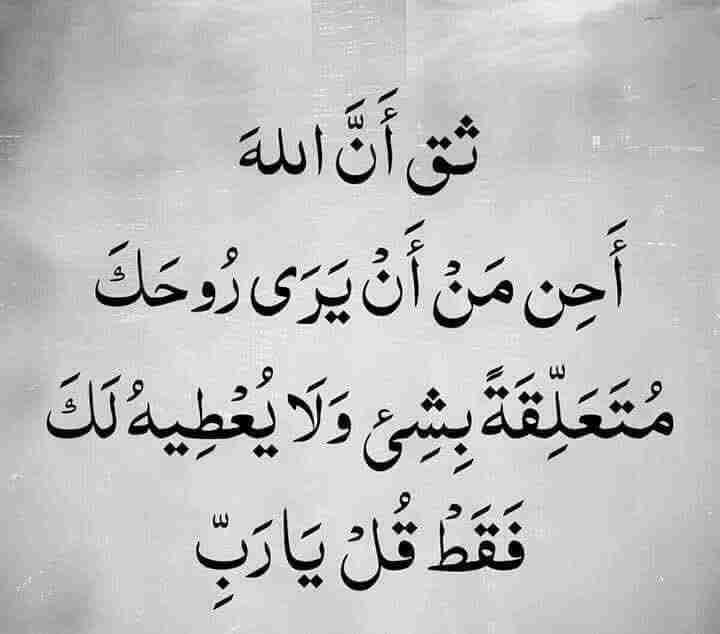 ثق أَنَّ اللهَ
أَحِن مَنْ أَنْ يَرَى رُوحَكَ
مُتَعَلِّقَةً بِشِئ وَلَا يُعْطِيهُ لَكَ
فَقَطْ قُلْ يَا رَبِّ